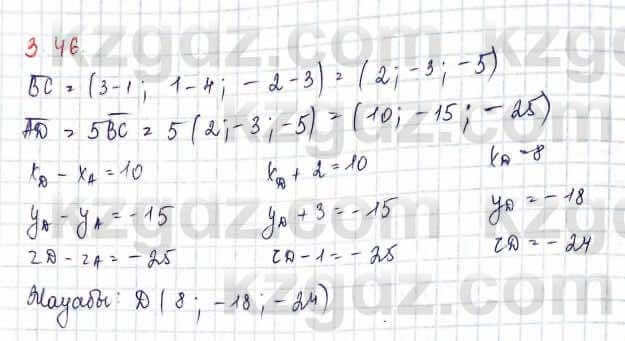 3.46
BC = (3-1; 1-4; -2-3) = (2; -3; -5)
AD = 5BC = 5(2; -3; -5) = (10; -15; -25)
x_D - x_A = 10 x_D + 2 = 10 x_D = 8
y_D - y_A = -15 y_D + 3 = -15 y_D = -18
z_D - z_A = -25 z_D - 1 = -25 z_D = -24
Жауабы: D(8; -18; -24)
kzgdz.com